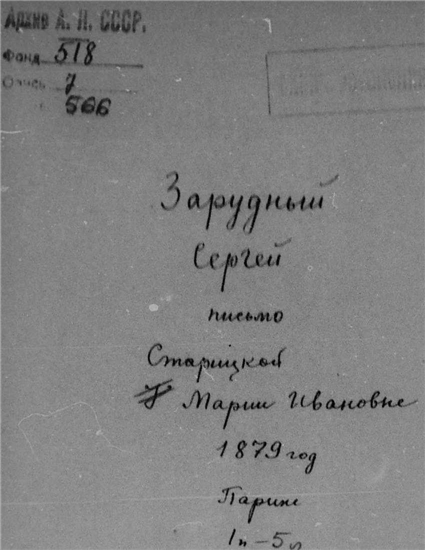 Архив А. Н. СССР.
Фонд 518
Опись 7
566
Зарудный
Сергей
письмо
Старицкой
Марии Ивановне
1879 год
Париж
1п – 5л